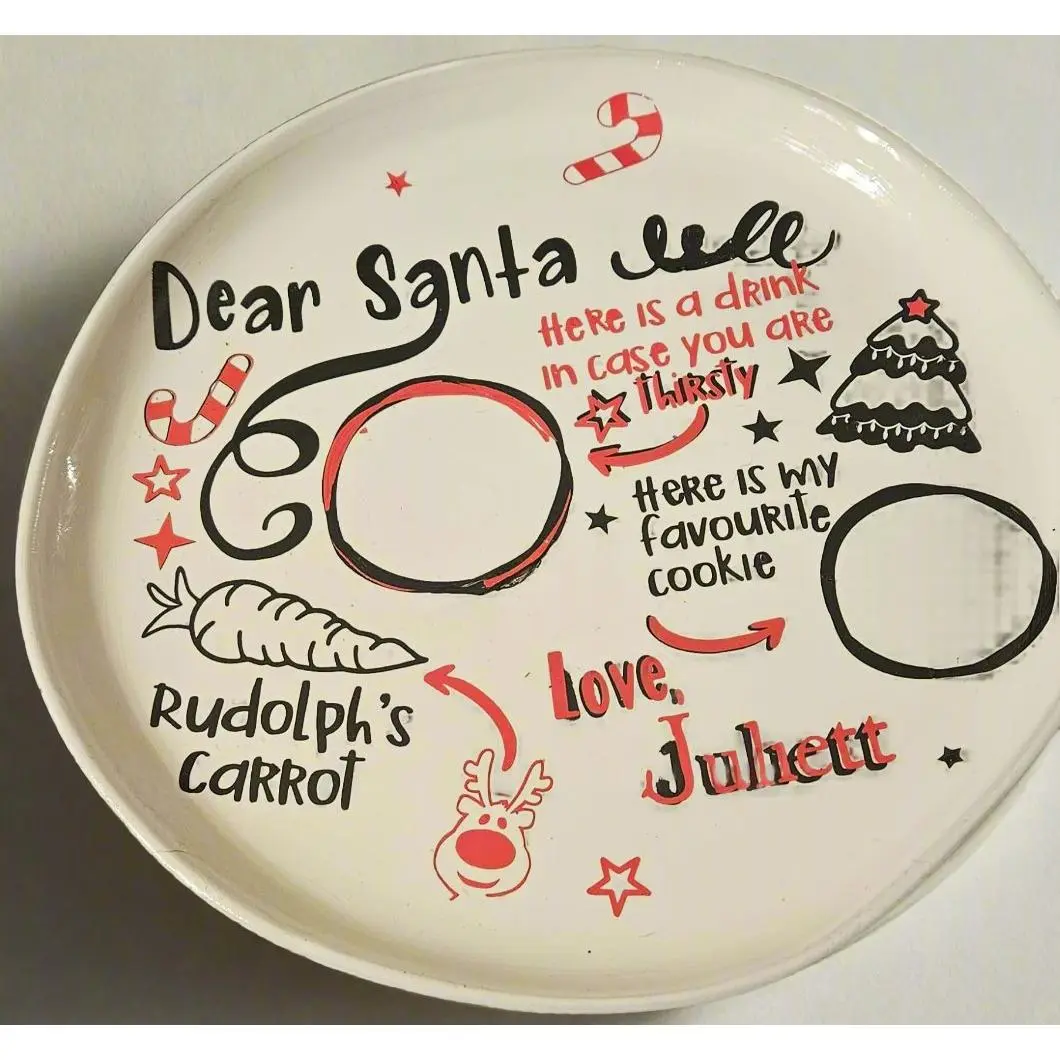 Dear Santa
HERE IS A dRINK
IN CASE YOU ARE
THIRSTY
HERE IS MY
FAVOURITE
COOKIE
RUdOLPH'S
CARROT
LOVE,
Juliett